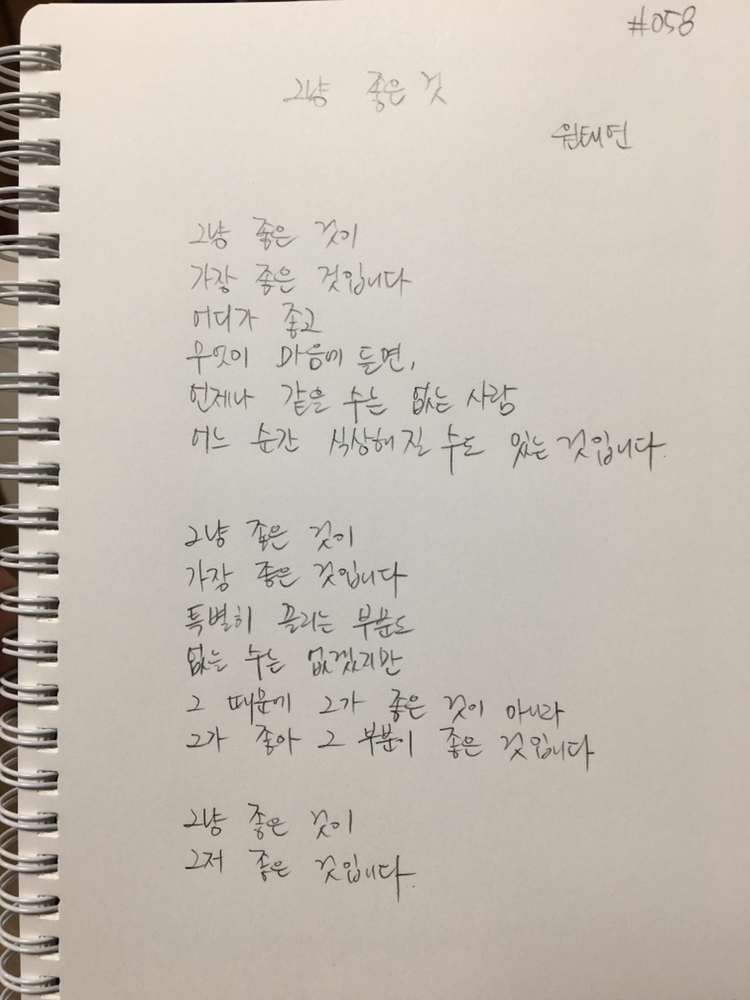 #058
그냥 좋은 것
원태연
그냥 좋은 것이
가장 좋은 것입니다
어디가 좋고
무엇이 마음에 들면,
언제나 같을 수는 없는 사람
어느 순간 식상해질 수도 있는 것입니다.
그냥 좋은 것이
가장 좋은 것입니다
특별히 끌리는 부분도
없을 수는 없겠지만
그 때문에 그가 좋은 것이 아니라
그가 좋아 그 부분이 좋은 것입니다
그냥 좋은 것이
그저 좋은 것입니다.